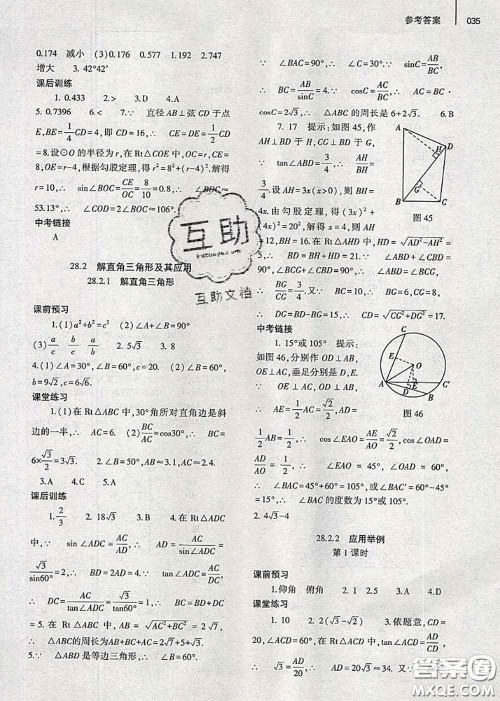 参考答案 035
0.174 减小 (3)0.176 0.577 1.192 2.747
增大 3.42°42′
课后训练
1.0.433 2.> 3.D 4.A
5.0.7396 6.< 7.∵ 直径AB⊥弦CD于点
E,BE=1/4CD=4,即CD=16,∴ CE=DE=1/2CD
=8.设⊙O的半径为r,在Rt△COE中,OC=r,CE=8,
OE=r-4.根据勾股定理,得r²=8²+(r-4)².解得
r=10,∴ sin∠COE=CE/OC=8/10=0.8.∴ ∠BOC≈
53.13°,∴ ∠COD=2∠BOC≈106°.
中考链接
A
28.2 解直角三角形及其应用
28.2.1 解直角三角形
课前预习
1.(1)a²+b²=c² (2)∠A+∠B=90°
(3)a/c b/c a/b 2.5√3 3.8
4.(1)∠A=30°,∠B=60°,c=4 (2)∠B=60°,
b=√3,c=2
课堂练习
1.(1)在Rt△ABC中,30°角所对直角边是斜
边的一半,∴ AC=6. (2)BC/AB=cos30°,∴ BC=
6×√3/2=3√3. 2.∠B=50°,AB≈3.9,AC≈2.5
3.A 4.D 5.A
课后训练
1.2/3 2.18√3 3.D 4.∵ 在Rt△ADC
中,∴ sin∠ADC=AC/AD,∴ AD=AC/sin∠ADC=
√3/sin60°=2,∴ BD=2AD=4.∵ tan∠ADC=AC/DC,
∴ DC=AC/tan∠ADC=√3/tan60°=1,∴ BC=BD+DC
=5.在Rt△ABC中,AB=√(AC²+BC²)=2√7,
∴ △ABC的周长为AB+BC+AC=2√7+5+√3.
5.∵ △ABD是等边三角形,∴ ∠B=60°.
∵ ∠BAC=90°,∴ ∠C=30°.∵ sinC=AB/BC,
∴ BC=AB/sinC=4.∵ cosC=AC/BC,∴ AC=BC·
cosC=2√3,∴ △ABC的周长是6+2√3. 6.B
7.17 提示:如图45,作
AH⊥BD于H,CG⊥BD于G,
∵ tan∠ABD=3/4,∴ AH/BH=
3/4.设AH=3x(x>0),则BH=4x.
由勾股定理,得(3x)²+
(4x)²=20².解得x=4,则AH
=12,BH=16.在Rt△AHD中,HD=√(AD²-AH²)
=5,∴ BD=BH+HD=21.∵ ∠ABD+∠CBD=
90°,∠BCG+∠CBD=90°,∴ ∠ABD=∠BCG,
∴ BG/CG=3/4.又∵ BC=10,∴ BG=6,CG=8,
∴ DG=BD-BG=15,∴ CD=√(CG²+DG²)=17.
A
B
C
D
H
G
图45
中考链接
1.15°或105° 提示:
如图46,分别作OD⊥AB,
OE⊥AC,垂足分别是D,E.
∵ OE⊥AC,OD⊥AB,
∴ AE=1/2AC=√3/2,AD=1/2AB
=√2/2.∵ cos∠EAO=AE/AO=√3/2,cos∠DAO=
AD/AO=√2/2,∴ ∠EAO=30°,∠DAO=45°,
∴ ∠BAC=45°+60°=105°,或∠BAC′=60°-45°
=15°,∴ ∠BAC的度数为15°或105°.
2.4√3-4
C
O
A
B
D
E
C′
图46
28.2.2 应用举例
第1课时
课前预习
1.仰角 俯角 2.1 2.5 3.A 4.D
课堂练习
1.10 2.2(√3-√2) 3.依题意,CD=
20,∠ACD=60°.在Rt△ACD中,tan∠ACD=
AD/CD,∴ √3=AD/20,∴ AD=20√3≈34.又∵ ∠BCD
互助
互助文档
答案圈
MXQE.COM